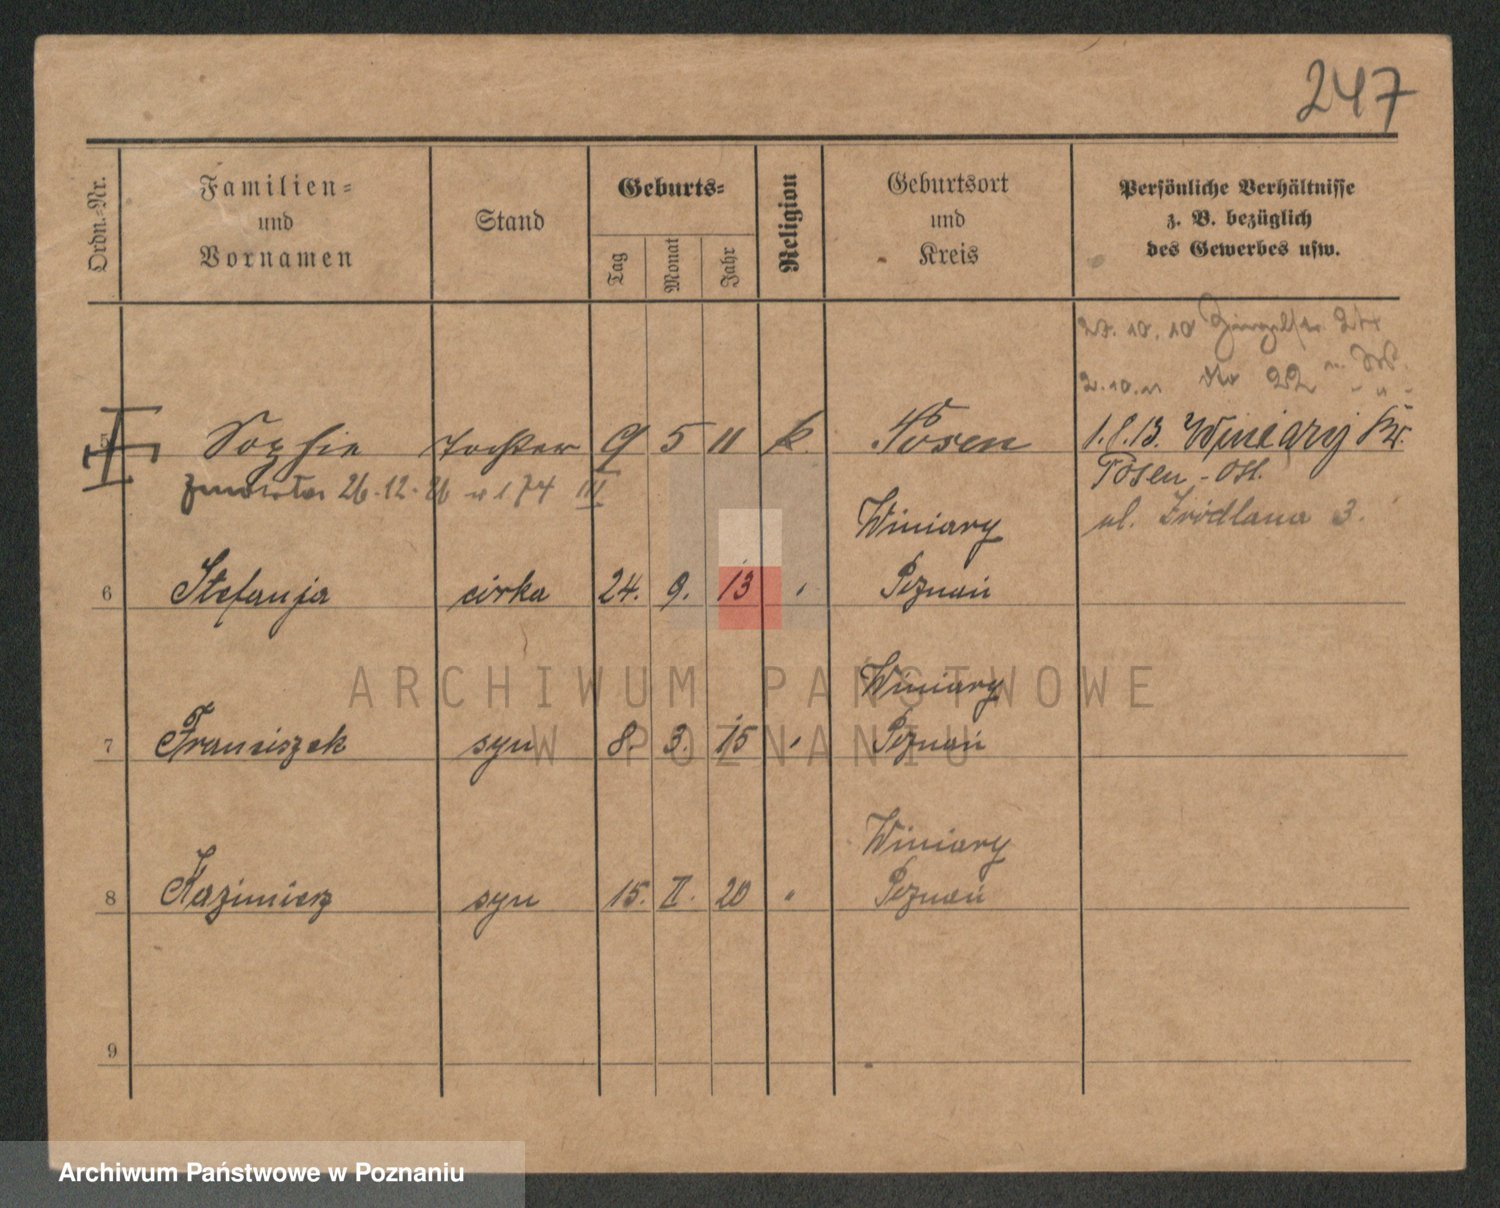 247
Ordn.-Nr.
Familien-
und
Vornamen
Stand
Geburts-
Tag
Monat
Jahr
Religion
Geburtsort
und
Kreis
Persönliche Verhältnisse
z. B. bezüglich
des Gewerbes usw.
27. 10. 10
2. 10. 22
5 Sophie Tochter 9 5 11 k. Posen 1.8.13. Winiary Kr.
Posen-Ost.
26.12.26 174 III
ul. Źródlana 3.
Winiary
6 Stefanja córka 24. 9. 13 " Poznań
Winiary
7 Franciszek syn 8. 3. 15 " Poznań
Winiary
8 Kazimierz syn 15. II. 20 " Poznań
9
ARCHIWUM PAŃSTWOWE
W POZNANIU
Archiwum Państwowe w Poznaniu